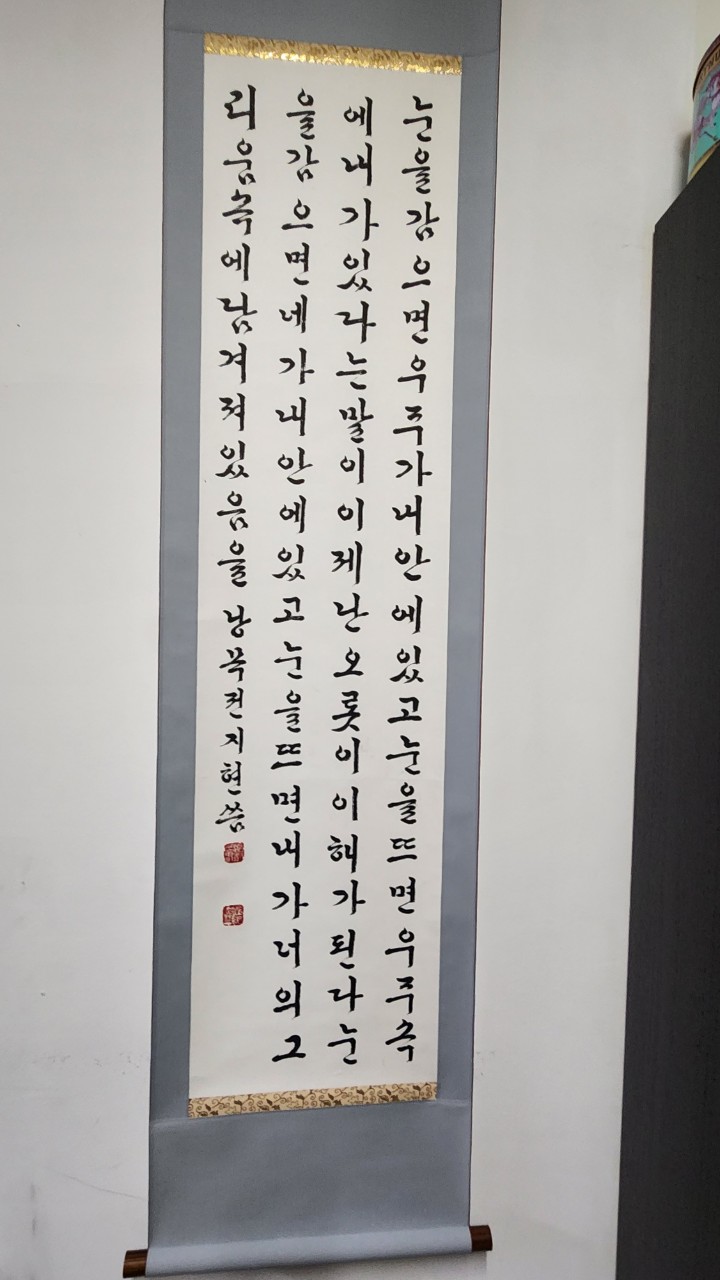 눈을감으면우주가내안에있고눈을뜨면우주속
에내가있다는말이이제난오롯이이해가된다눈
을감으면네가내안에있고눈을뜨면내가너의그
리움속에남겨져있음을 낭목전지현씀